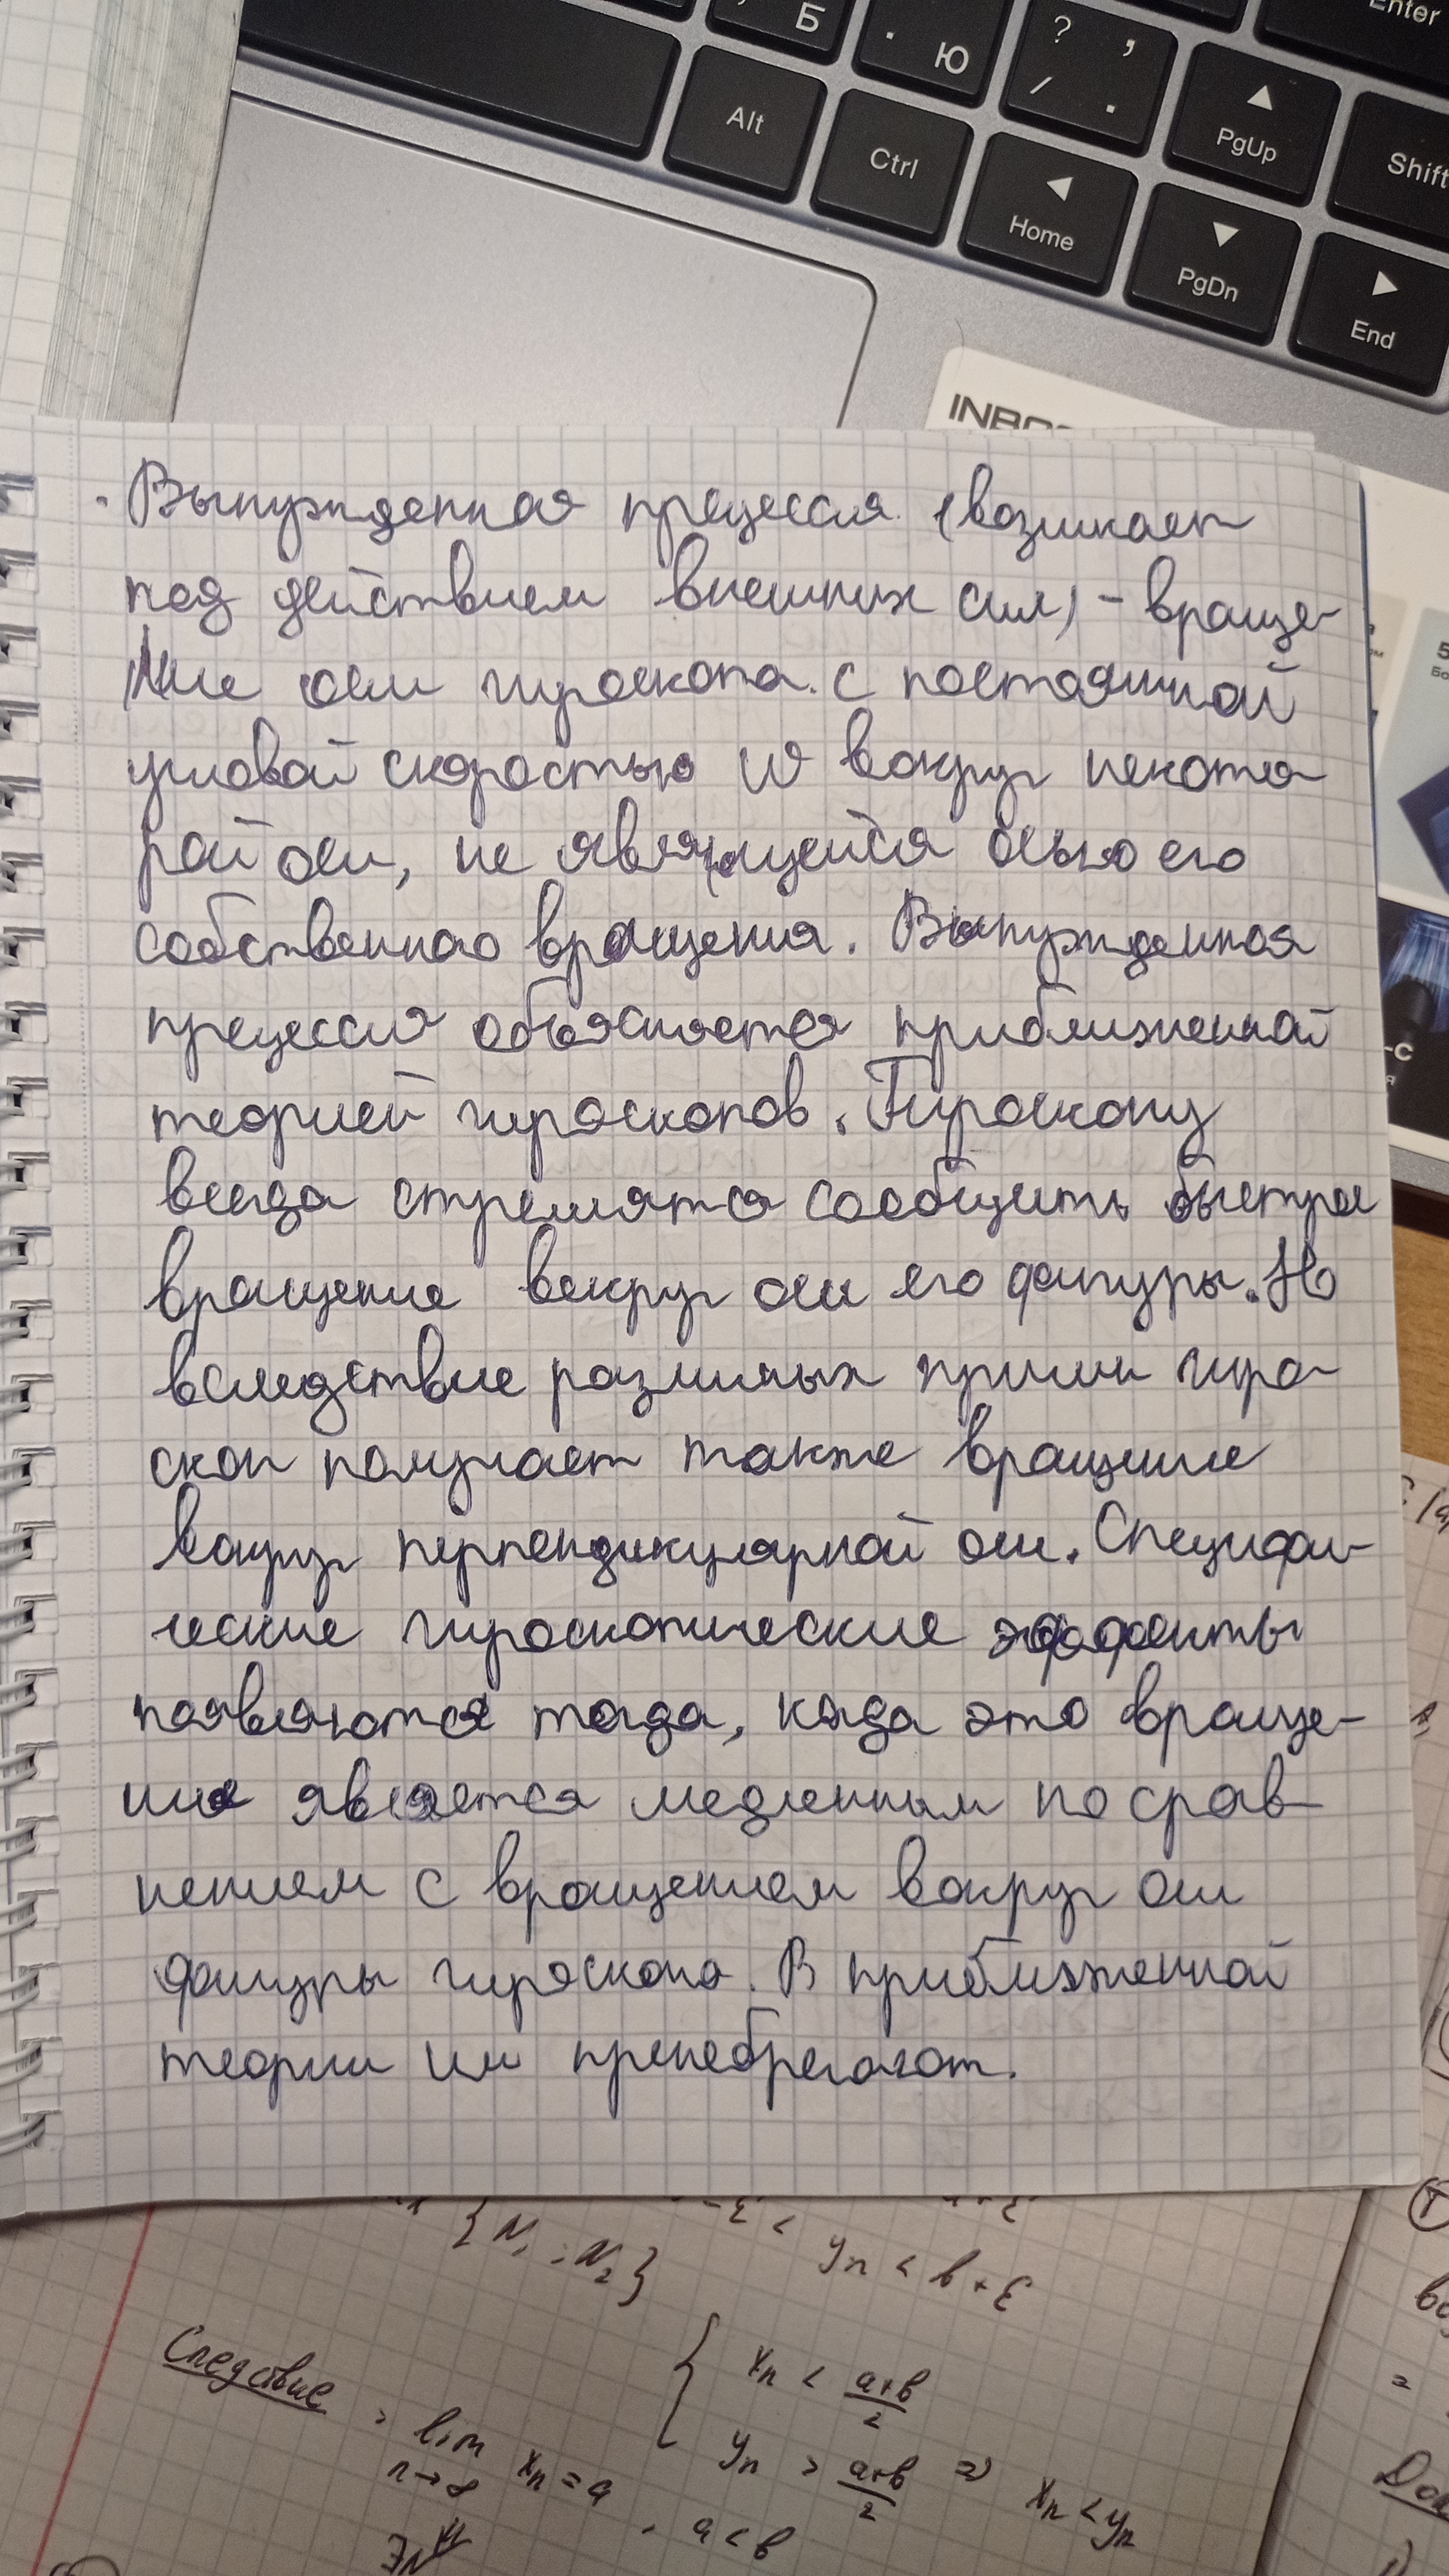 Б
. Ю
? ,
/ .
Enter
Alt
Ctrl
PgUp
Shift
Home
PgDn
End
· Вынужденная прецессия (возникает
под действием внешних сил) - враще-
ние оси гироскопа с постоянной
угловой скоростью ω вокруг некото
рой оси, не являющейся осью его
собственного вращения. Вынужденная
прецессия объясняется приближенной
теорией гироскопов. Гироскопу
всегда стремятся сообщить быстрое
вращение вокруг оси его фигуры. Но
вследствие различных причин гиро
скоп получает также вращение
вокруг перпендикулярной оси. Специфи-
ческие гироскопические эффекты
появляются тогда, когда это враще-
ние является медленным по срав
нением с вращением вокруг оси
фигуры гироскопа. В приближенной
теории им пренебрегают.
{N₁ ; N₂}
yₙ < b + ε
Следствие
xₙ < (a+b)/2
lim xₙ = a
n→∞
yₙ > (a+b)/2 ⇒ xₙ < yₙ
a < b